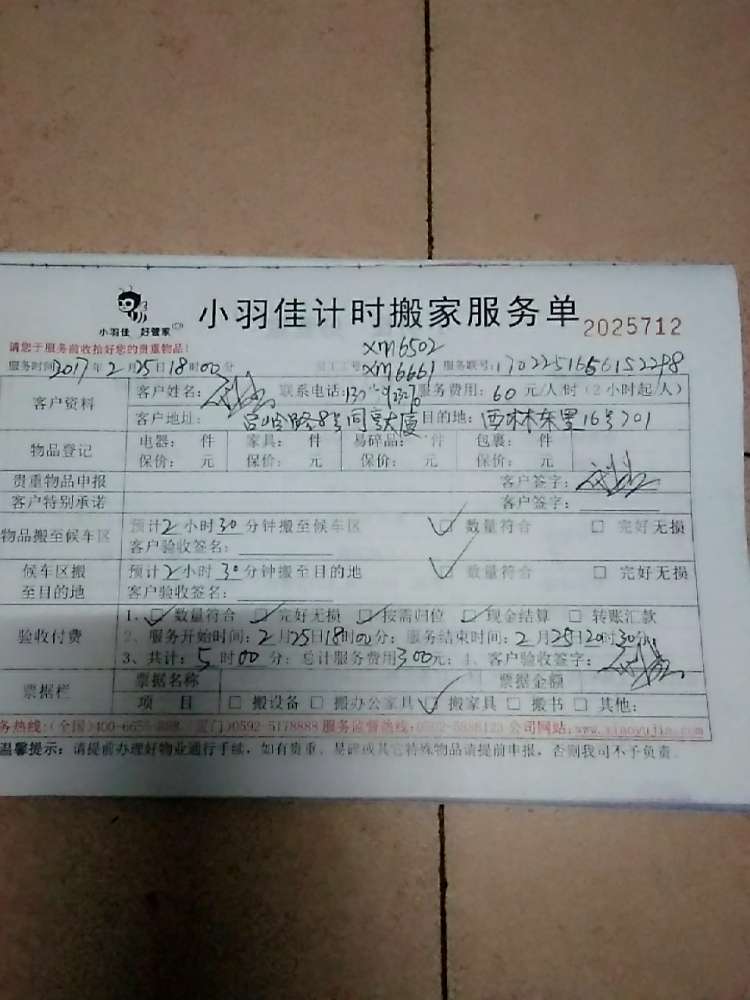 小羽佳 好管家
小羽佳计时搬家服务单 2025712
请您于服务前收拾好您的贵重物品!
xm6502
服务时间2017年2月25日18时00分 员工工号 xm6661 服务联号:1702251656152298
客户资料 客户姓名: 联系电话: 服务费用:60元/人/时(2小时起/人)
客户地址: 路8号同亨大厦 目的地:西林东里16号701
物品登记 电器: 件 家具: 件 易碎品: 件 包裹: 件
保价: 元 保价: 元 保价: 元 保价: 元
贵重物品申报 客户签字:
客户特别承诺 客户签字:
物品搬至候车区 预计2小时30分钟搬至候车区 数量符合 完好无损
客户验收签名:
候车区搬至目的地 预计2小时30分钟搬至目的地 数量符合 完好无损
客户验收签名:
验收付费 1、数量符合 完好无损 按需归位 现金结算 转账汇款
2、服务开始时间:2月25日18时00分;服务结束时间:2月25日20时30分;
3、共计:5时00分;总计服务费用300元;4、客户验收签字:
票据栏 票据名称 票据金额
项目 搬设备 搬办公家具 搬家具 搬书 其他:
务热线:(全国)400-665 (厦门)0592-5178888 服务监督热线: 公司网站:www.xiaoyujia.com
温馨提示:请提前办理好物业通行手续,如有贵重、易碎或其它特殊物品请提前申报,否则我司不予负责